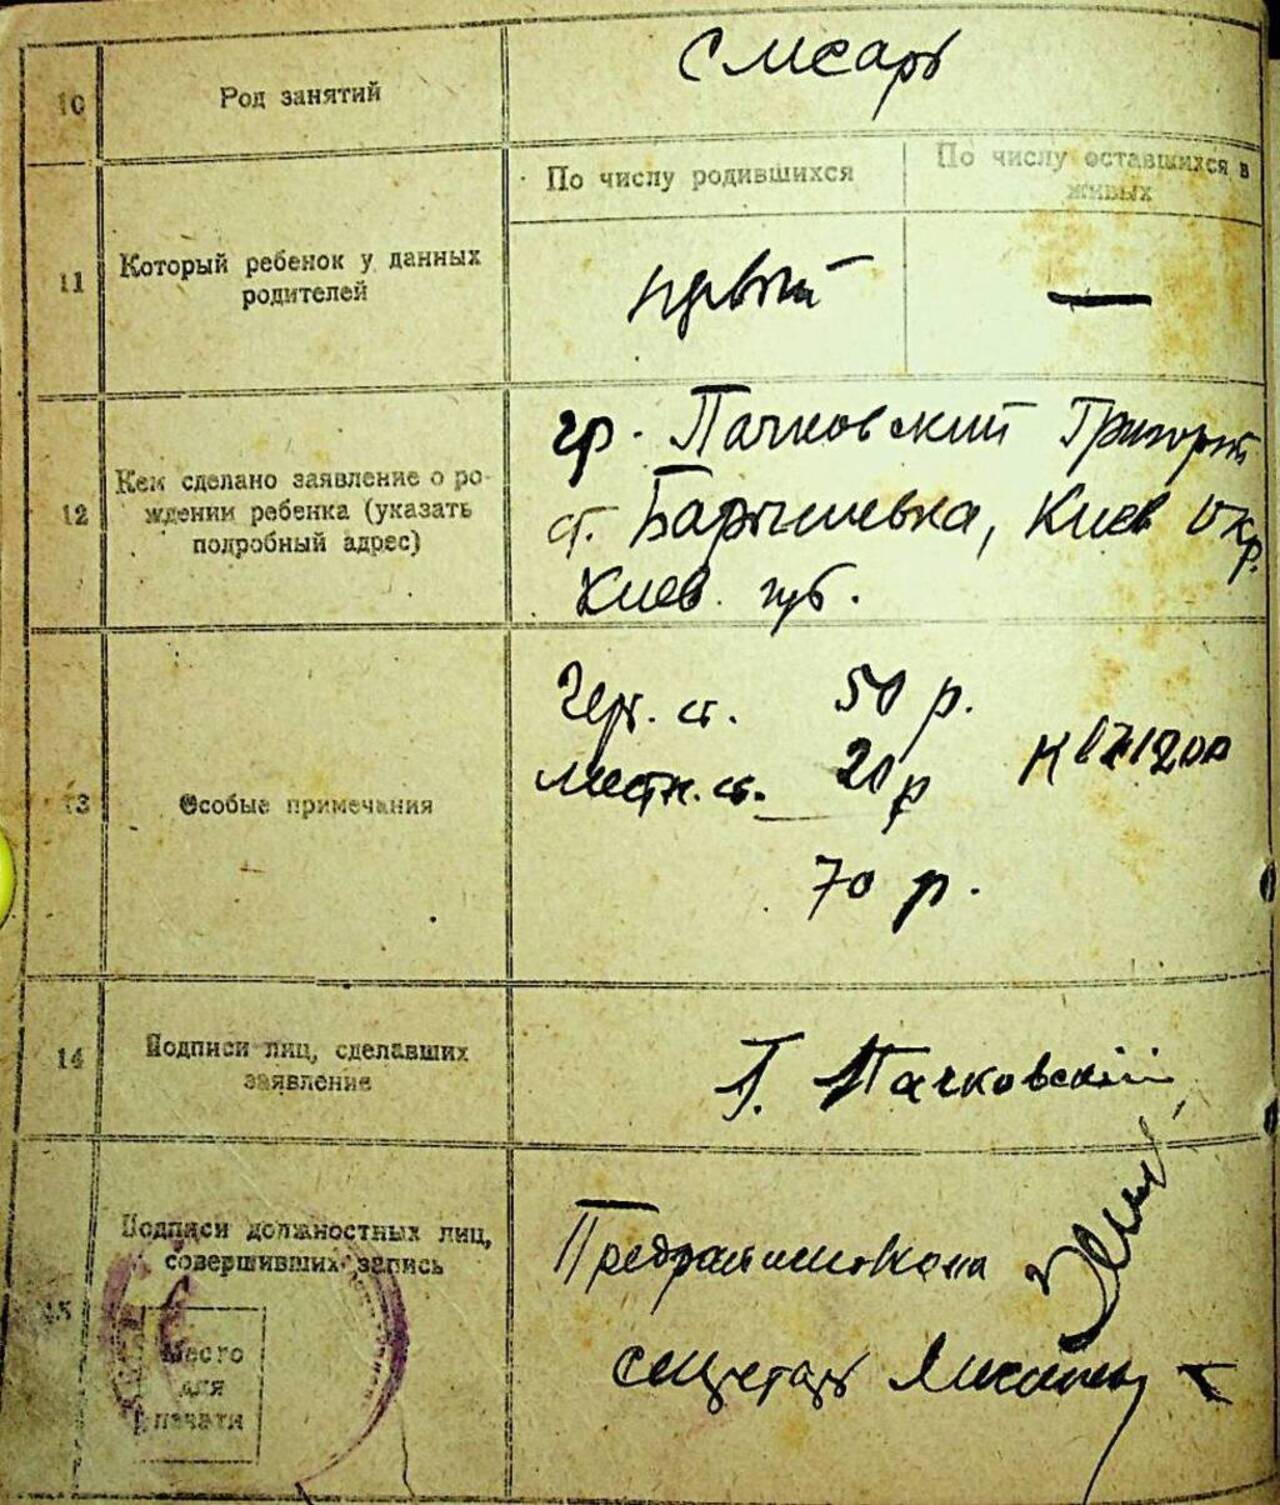 10
Род занятий
Слесарь
По числу родившихся
По числу оставшихся в
живых
11
Который ребенок у данных
родителей
первый
—
12
Кем сделано заявление о ро-
ждении ребенка (указать
подробный адрес)
гр. Пачковский Григорий
ст. Барышевка, Киев Окр.
Киев. губ.
13
Особые примечания
Герб. сб. 50 р.
Местн. сб. 20 р
70 р.
14
Подписи лиц, сделавших
заявление
Г. Пачковскій
15
Подписи должностных лиц,
совершивших запись
Место
для
печати
секретарь